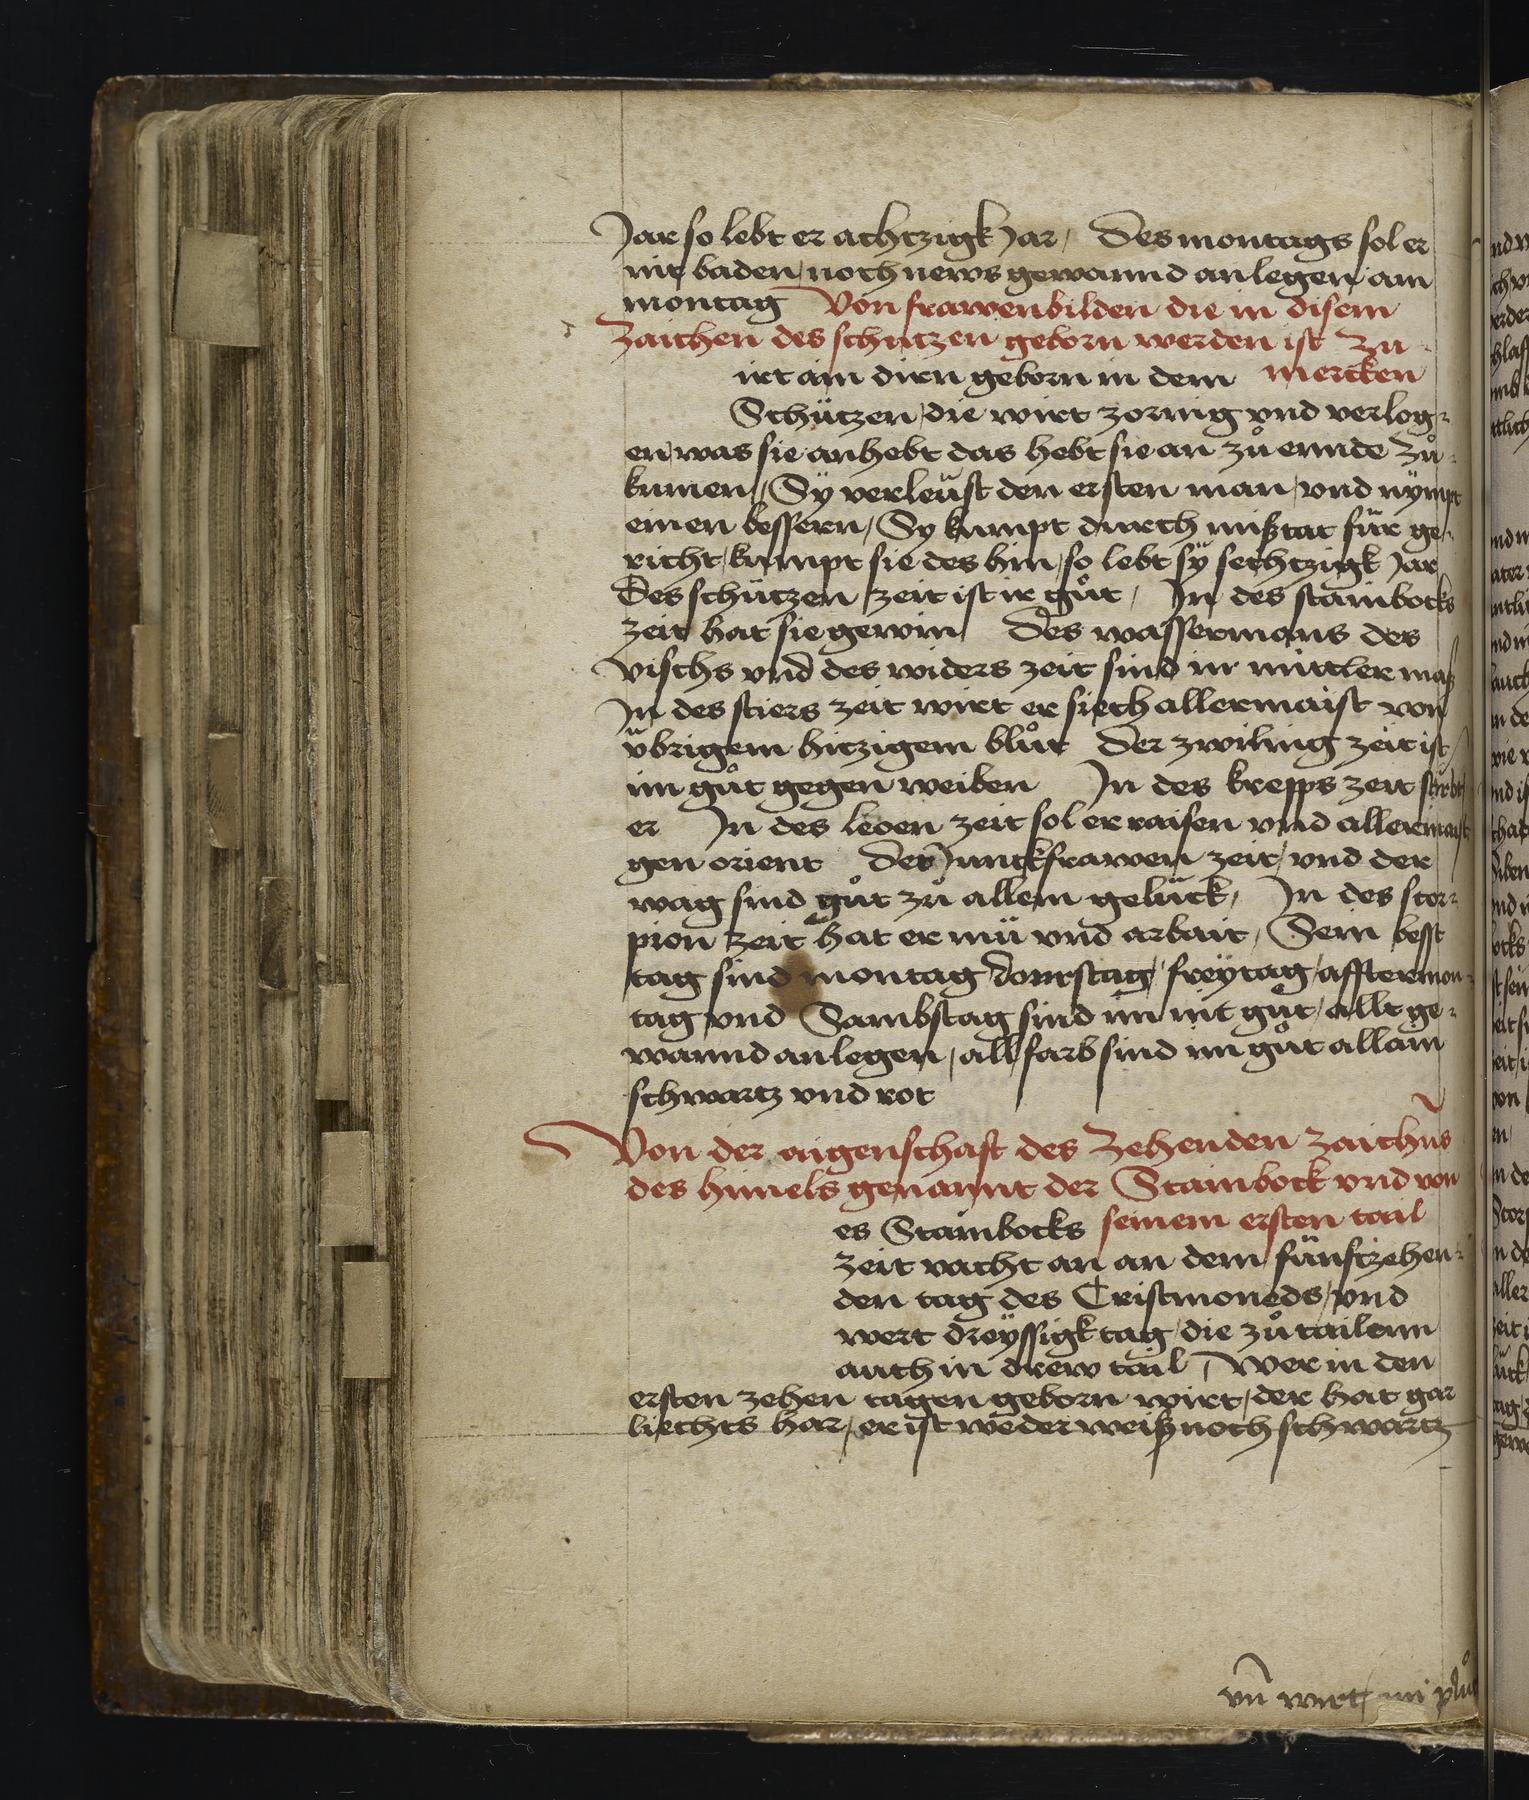 Jar so lebt er achtzigk Jar / Des montags sol er
nit baden / noch news gewannd anlegen / am
montag Von frawenbilden die in disem
Zaichen des schützen geborn werden ist Zu
irt ain dirn geborn in dem mercken
Schützen / die wirt zornig vnd verlog-
en / was sie anhebt das hebt sie an zů ennde Zů-
kumen / Sÿ verleüst den ersten man / vnd nÿmpt
einen bessern / Sy kumpt durch mißtat für ge-
richt / kumpt sie des hin / so lebt sÿ sechtzigk Jar
Des schützen zeit ist ir gůt / In des stainbocks
zeit hat sie gewin / Des wassermans des
vischs vnd des widers zeit sind ir mittler maß
In des stiers zeit wirt er siech allermaist von
übrigem hitzigem blůt Der zwiling zeit ist /
im gůt gegen weiben In des krepps zeit stirbt
er In des leoen zeit sol er raisen vnd allermaist
gen orient Der Junckfrawen zeit / vnd der
wag sind gůt zů allem gelück / In des scor-
pion zeit hat er mü vnd arbait / Sein besst
tag sind montag donrstag / freÿtag / afftermon-
tag vnd Sambstag sind im nit gůt / allt ge-
wannd anlegen / all farb sind im gůt allain
schwartz vnd rot
Von der aigenschaft des Zehenden Zaichens
des himels genannt der Stainbock vnd von
es Stainbocks seinem ersten tail
Zeit vacht an an dem fünftzehen-
den tag des Cristmoneds / vnd
wert dreÿssigk tag / die zů tailenn
auch in drew tail / Wer in den
ersten zehen tagen geborn wirt / der hat gar
liechts har / er ist weder weiß noch schwartz
vn̄ wirt im